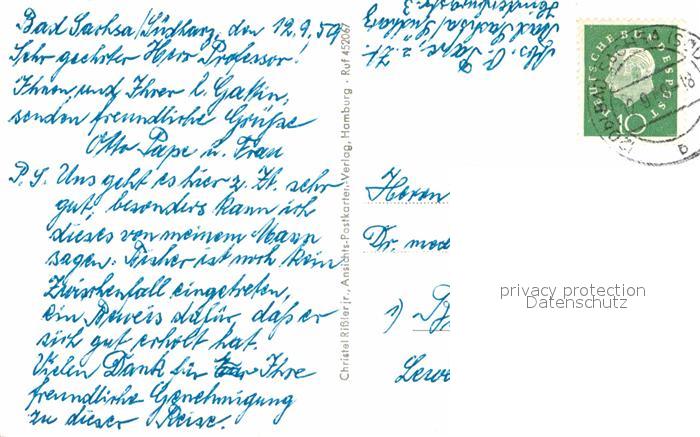 Bad Sachsa/Südharz, den 12.9.59
Sehr geehrter Herr Professor!
Ihnen und Ihrer l. Gattin,
senden freundliche Grüße
Otto Pape u. Frau
P.S. Uns geht es hier z. Zt. sehr
gut, besonders kann ich
dieses von meinem Mann
sagen. Bisher ist noch kein
Zwischenfall eingetreten,
ein Beweis dafür, daß er
sich gut erholt hat.
Vielen Dank für Ihre
freundliche Genehmigung
zu dieser Reise.
Christel Rißler jr., Ansichts-Postkarten-Verlag, Hamburg · Ruf 452067
Abs. O. Pape z. Zt.
Bad Sachsa/Südharz
3
DEUTSCHE BUNDESPOST
10
Herrn
Dr. med
1)
privacy protection
Datenschutz